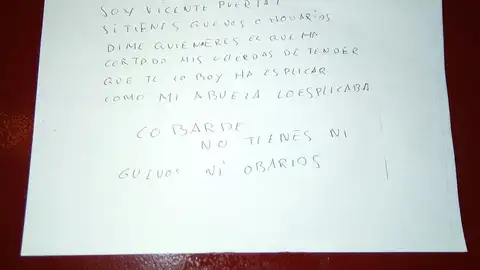 SOY VICENTE PUERTA 1
SI TIENES GUEVOS O HOVARIOS
DIME QUIEN ERES EL QUE MA
CERTADO MIS CUERDAS DE TENDER
QUE TE LO BOY HA ESPLICAR
COMO MI ABUELA LOESPLICABA
COBARDE
NO TIENES NI
GUEVOS NI OBARIOS